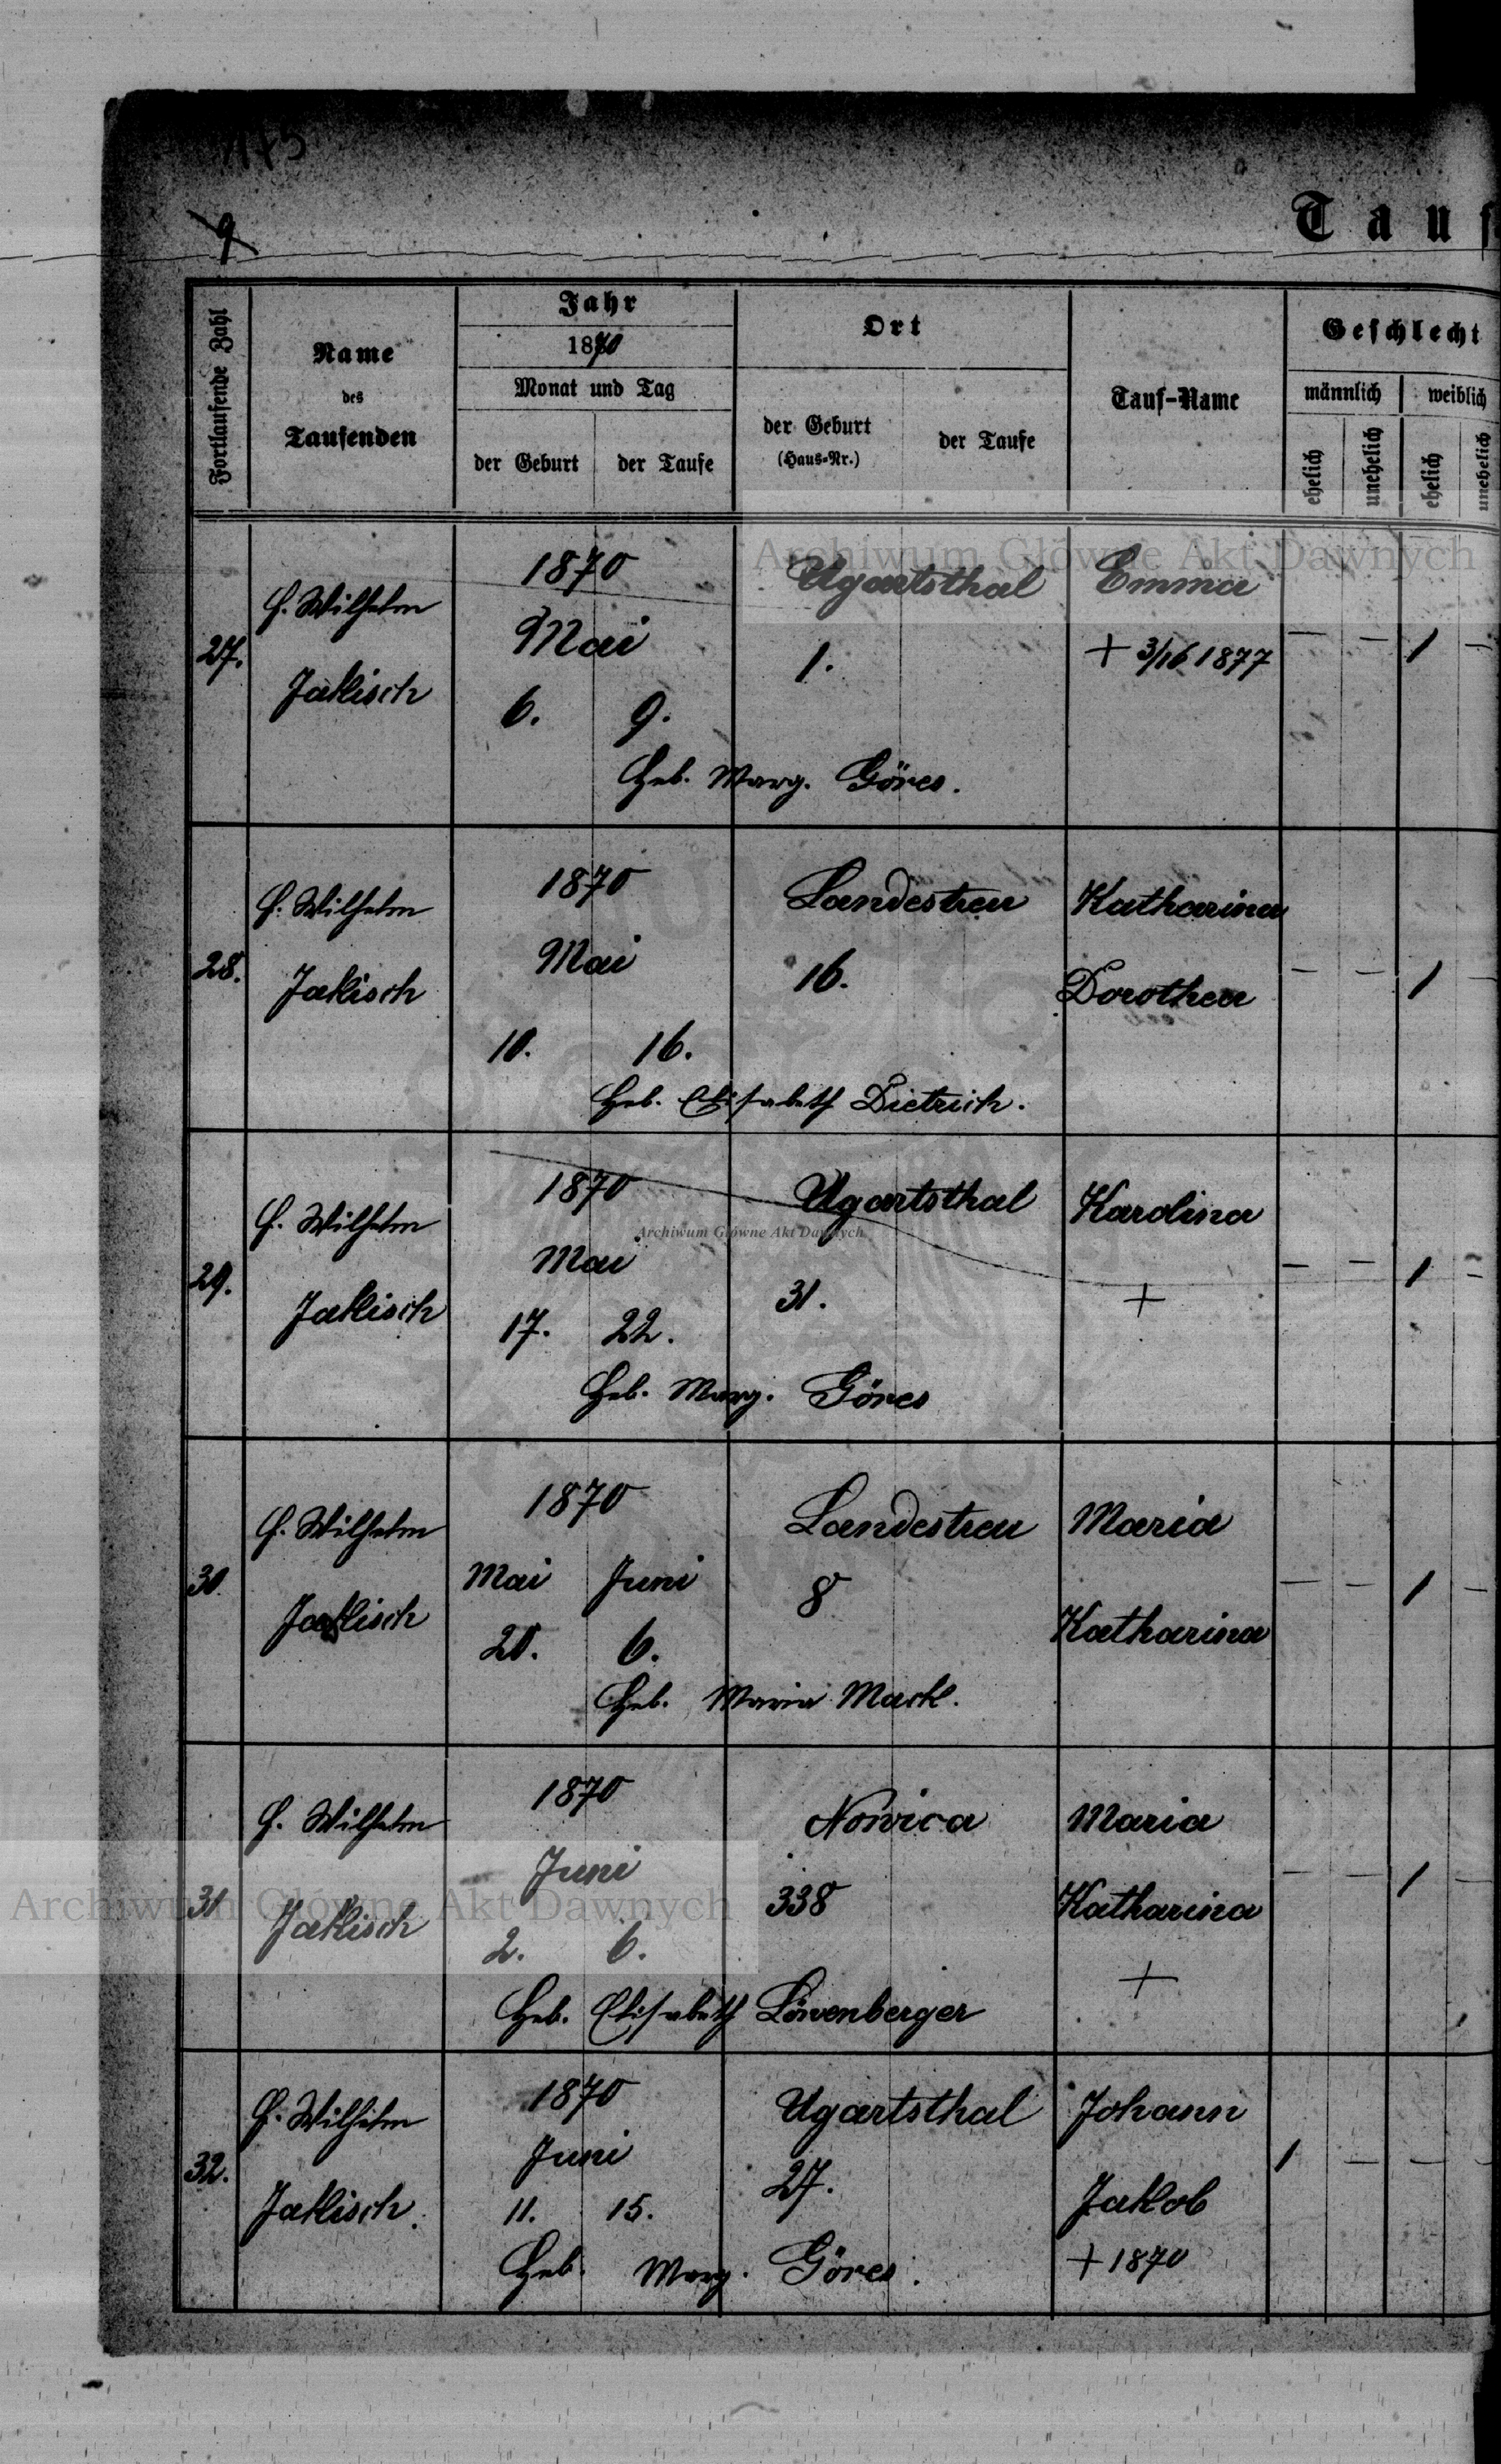 175
9
Tauf
Fortlaufende Zahl
Name
des
Taufenden
Jahr
1870
Monat und Tag
der Geburt
der Taufe
Ort
der Geburt
(Haus-Nr.)
der Taufe
Tauf-Name
Geschlecht
männlich
weiblich
ehelich
unehelich
ehelich
unehelich
Archiwum Główne Akt Dawnych
27. Wilhelm 1870 Ugartsthal Emma
Jakisch Mai 1. + 3/16 1877 — — 1 —
6. 9.
Heb. Marg. Göres.
28. Wilhelm 1870 Landestreu Katharina
Jakisch Mai 16. Dorothea — — 1 —
10. 16.
Heb. Elisabeth Dietrich.
29. Wilhelm 1870 Ugartsthal Karolina
Archiwum Główne Akt Dawnych
Jakisch Mai 31. + — — 1 —
17. 22.
Heb. Marg. Göres
30. Wilhelm 1870 Landestreu Maria
Jakisch Mai Juni 8 Katharina — — 1 —
20. 6.
Heb. Maria Mark.
31 Wilhelm 1870 Nowica Maria
Archiwum Główne Akt Dawnych
Jakisch Juni 338 Katharina — — 1 —
2. 6. +
Heb. Elisabeth Löwenberger
32. Wilhelm 1870 Ugartsthal Johann
Jakisch. Juni 27. Jakob 1 — — —
11. 15. + 1870
Heb. Marg. Göres.